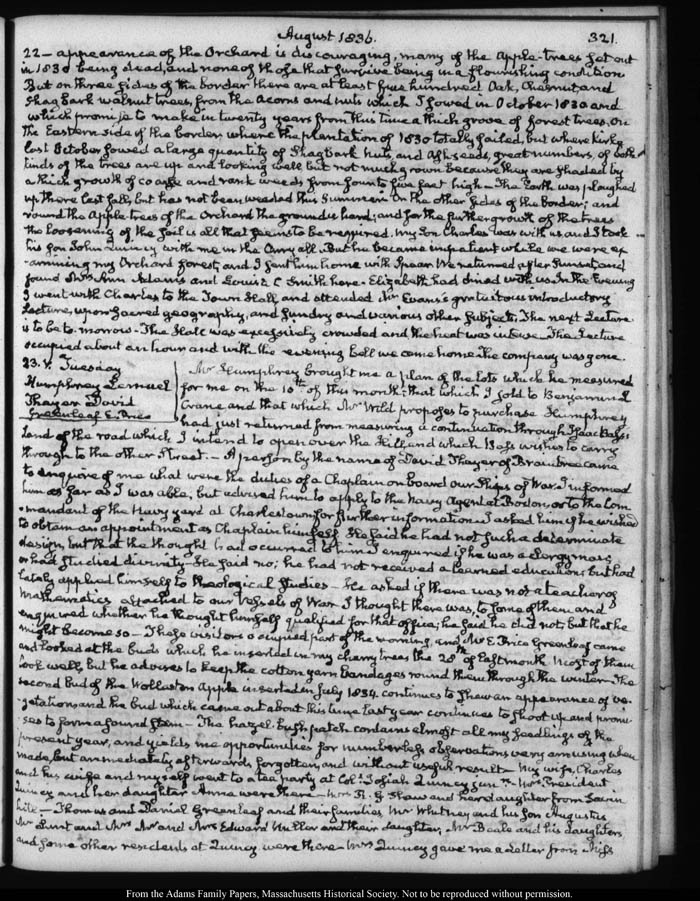 August 1836.
321.
22 — appearance of the Orchard is discouraging; many of the Apple-trees set out
in 1830 being dead, and none of those that survive being in a flourishing condition
But on three sides of the border there are at least five hundred Oak, Chesnut and
Shagbark walnut trees, from the acorns and nuts which I sowed in October 1830 and
which promise to make in twenty years from this time a thick grove of forest trees. On
the Eastern side of the border, where the plantation of 1830 totally failed, but where Kirk
last October sowed a large quantity of Shagbark nuts, and Ash seeds, great numbers of both
kinds of the trees are up and looking well but not much grown because they are shaded by
a thick growth of coarse and rank weeds from four to five feet high — The Earth was ploughed
up there last fall, but has not been weeded this Summer. On the other sides of the border; and
round the Apple trees of the Orchard the ground is hard; and for the further growth of the trees
the loosening of the soil is all that seems to be required. My Son Charles was with us and I took
his son John Quincy with me in the Carry all. But he became impatient while we were ex
-amining my Orchard forest, and I sent him home with Spear. We returned after Sunset, and
found Mrs Ann Adams and Louisa C Smith here. Elizabeth had dined with us. In the Evening
I went with Charles to the Town Hall, and attended Mr Evans's gratuitous introductory
Lecture, upon Sacred geography, and sundry and various other subjects. The next Lecture
is to be to-morrow — The Hall was excessively crowded and the heat was intense — The Lecture
occupied about an hour and with the evening bell we came home. The company was gone.
23. V. Tuesday
Humphrey Lemuel
Thayer David
Greenleaf E. Price
Mr Humphrey brought me a plan of the Lots which he measured
for me on the 10th of this month; that which I sold to Benjamin
Crane and that which Mr Wild proposes to purchase. Humphrey
had just returned from measuring a continuation through Isaac Bass's
Land of the road which I intend to open over the hill, and which Bass wishes to carry
through to the other Street. — A person by the name of David Thayer of Braintree came
to enquire of me what were the duties of a Chaplain on board our Ships of War. I informed
him as far as I was able, but advised him to apply to the Navy Agent at Boston, or to the Com
-mandant of the Navy yard at Charlestown for further information. I asked him if he wished
to obtain an appointment as Chaplain himself. He said he had not such a determinate
design, but that the thought had occurred to him. I enquired if he was a clergyman;
or had studied divinity — He said no; he had not received a learned education, but had
lately applied himself to theological Studies — He asked if there was not a teacher of
Mathematics attached to our Vessels of War. I thought there was, to some of them and
enquired whether he thought himself qualified for that office; he said he did not, but that he
might become so — These visitors occupied part of the morning, and Mr E. Price Greenleaf came
and looked at the buds which he inserted in my cherry trees the 28th of last month. Most of them
look well, but he advises to keep the cotton yarn bandages round them through the winter. The
second bud of the Wollaston Apple inserted in July 1834. continues to shew an appearance of ve-
-getation; and the bud which came out about this time last year continues to shoot up and promi-
-ses to form a sound stem — The hazel bush patch contains almost all my seedlings of the
present year, and yields me opportunities for numberless observations very amusing when
made, but immediately afterwards forgotten, and without useful result — My wife, Charles
and his wife and myself went to a tea party at Col: Josiah Quincy junr's Mrs President
Quincy and her daughter Anna were there — Mrs R. G. Shaw and her daughter from Savin
hill — Thomas and Daniel Greenleaf and their families Mr Whitney and his Son Augustus
Mr Lunt and Mrs Mr and Mrs Edward Miller and their daughter, Mr Beale and his daughters
and some other residents at Quincy were there — Mrs Quincy gave me a Letter from Miss
From the Adams Family Papers, Massachusetts Historical Society. Not to be reproduced without permission.